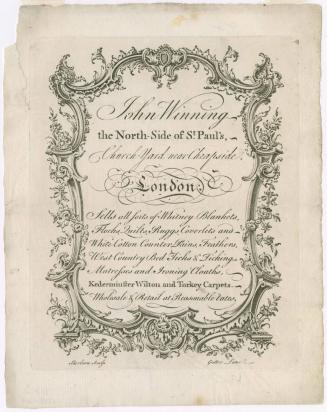 John Winning
the North-Side of St. Paul's,
Church-Yard near Cheapside,
London,
Sells all sorts of Whitney Blankets,
Flocks, Quilts, Ruggs, Coverlets and
White Cotton Counter Pains, Feathers,
West Country Bed Ticks &
Matresses and Ironing Cloaths,
Kederminster Wilton and Turkey Carpets
Wholesale & Retail at Reasonable Rates,
Sculp.